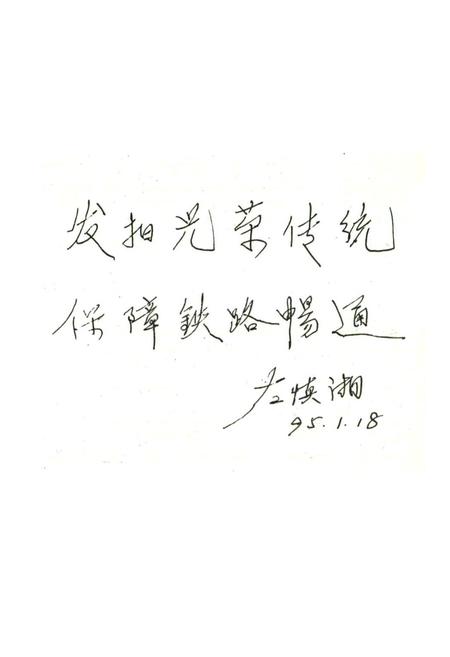 发扬光荣传统
保障鉄路暢通
左慎湘
95.1.18